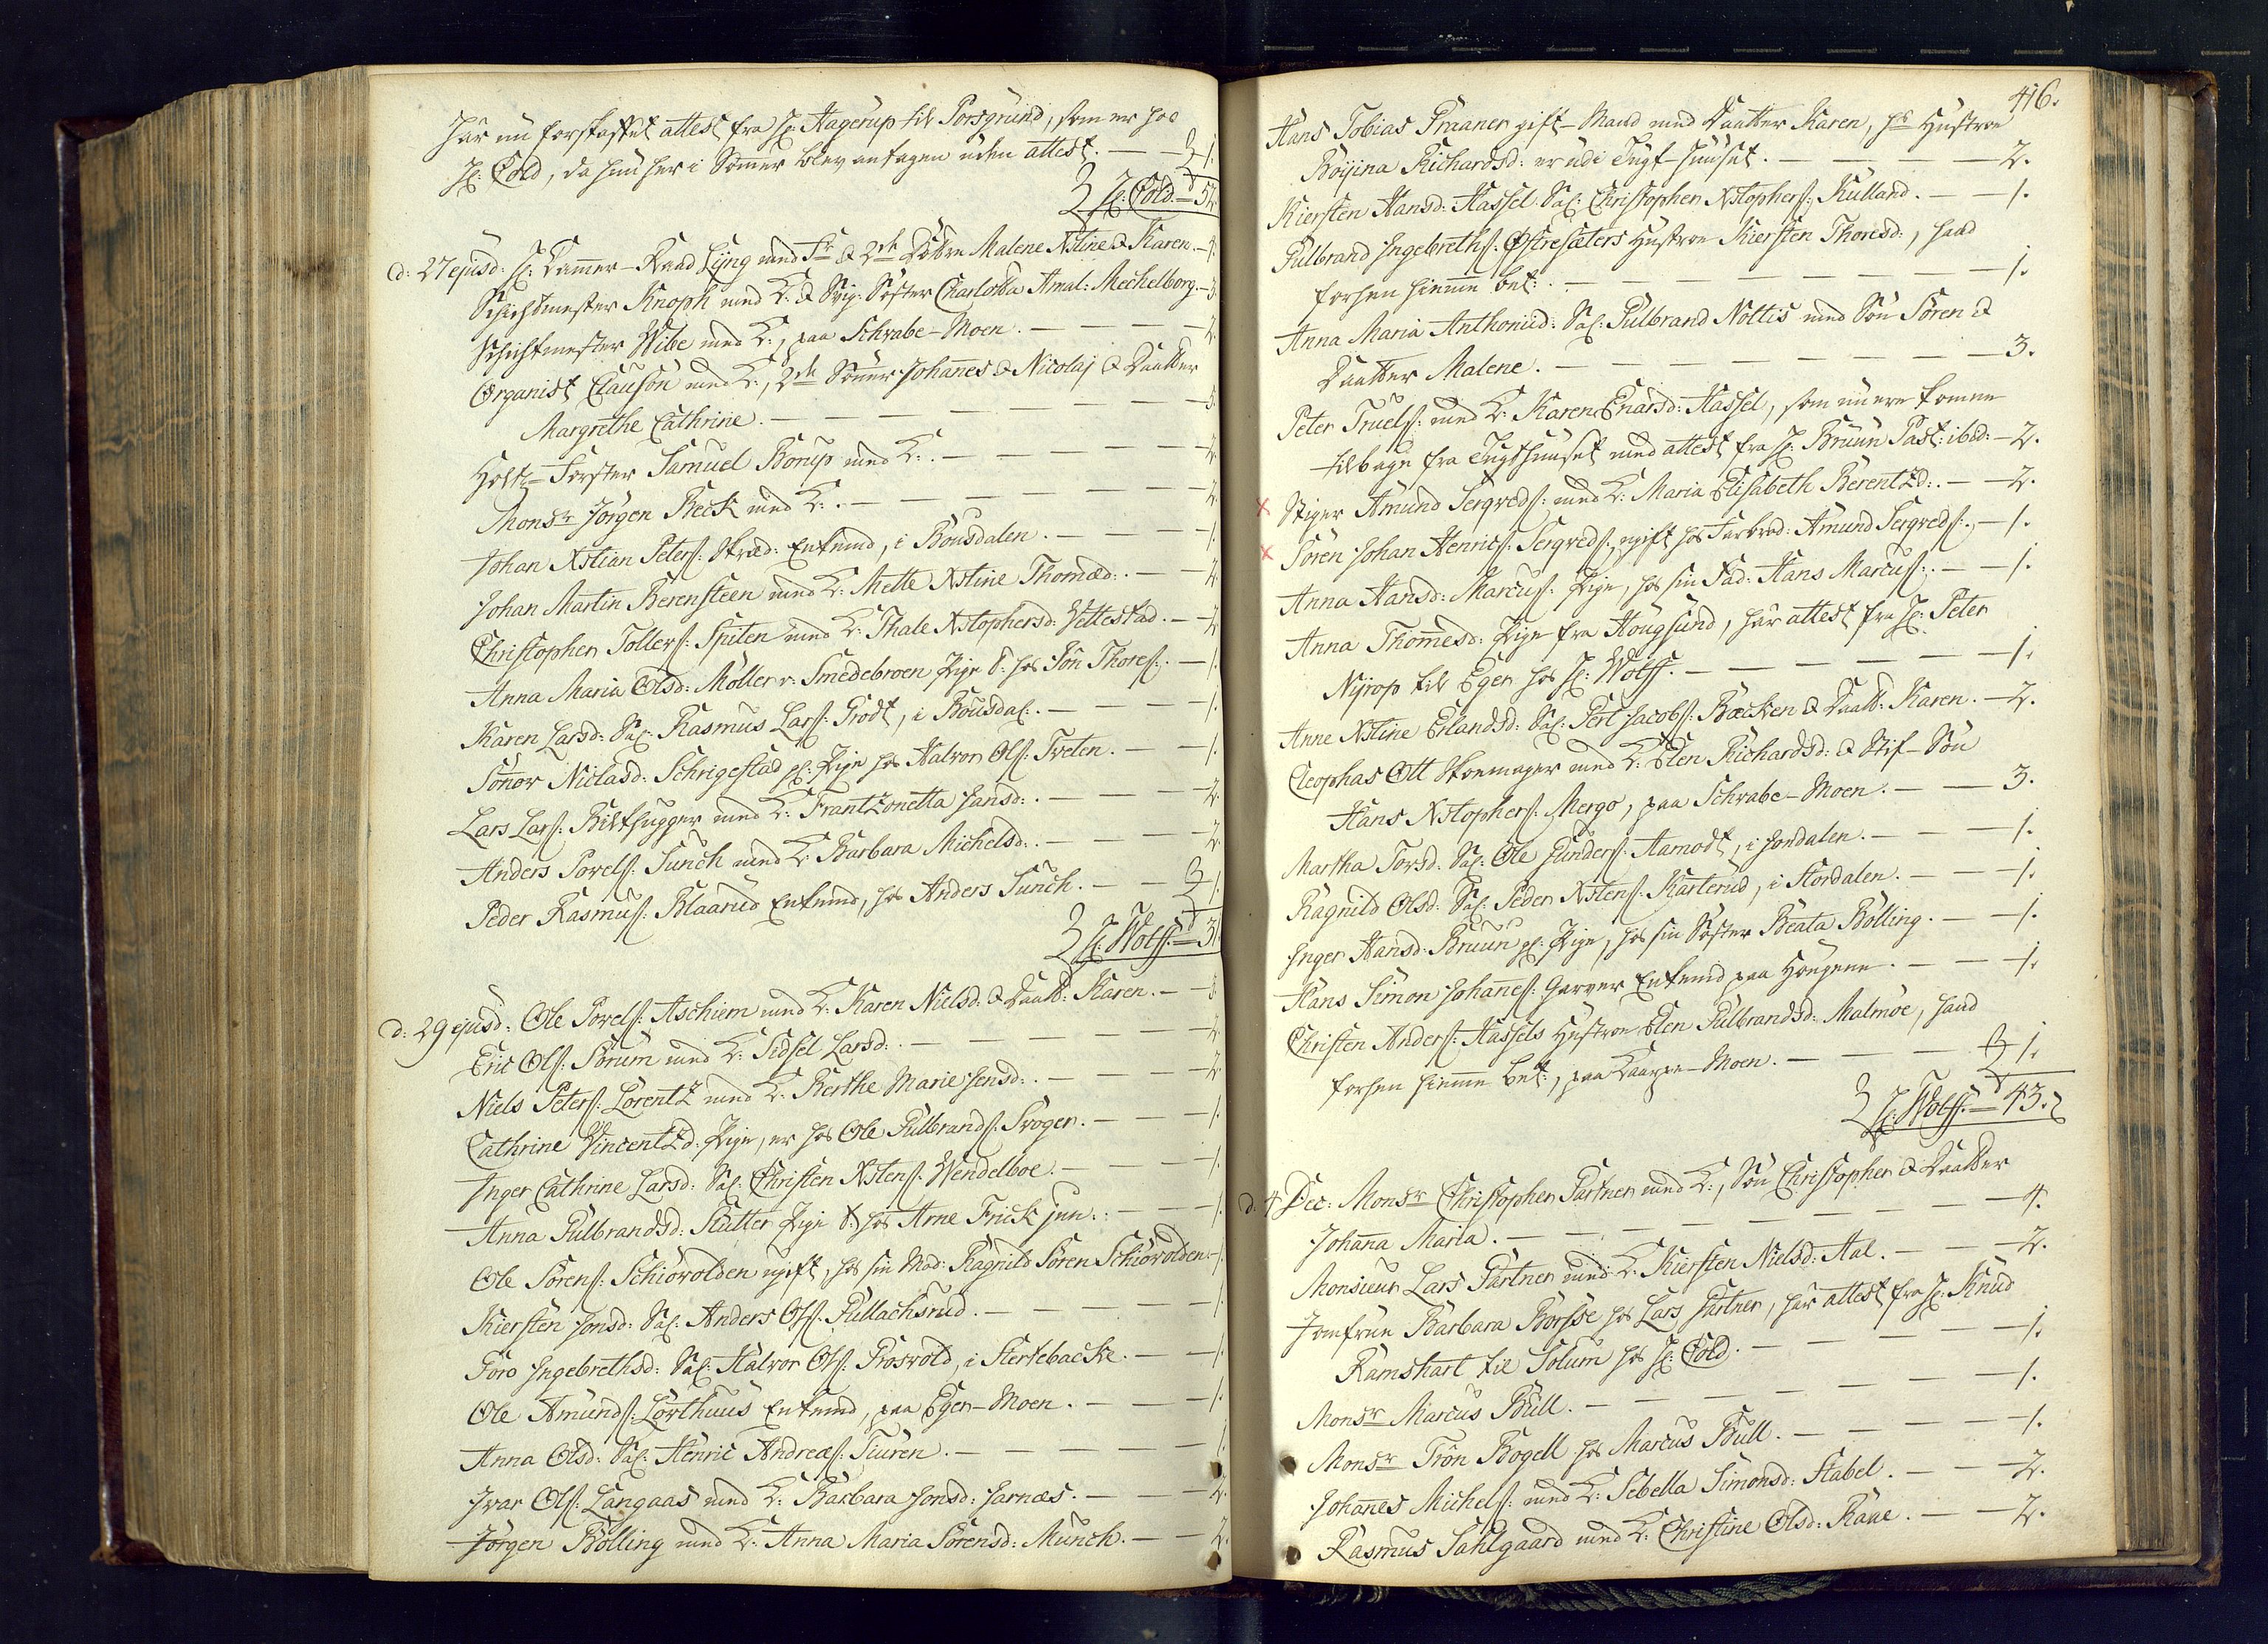 har nu forskaffet attest fra Hr: Hagerup til Porsgrund, som er hos
Hr: Cold, da hun her i Somer blev antagen uden attest. — 1.
Hr: Cold. — 52.
d: 27 ejusd: Hr: Cammer-Raad Lyng med Fr & 2de Døttre Malene Xstine & Karen. — 4.
Schichtmester Knoph med K: & Svig: Søster Charlotta Amal: Mechelborg. — 3.
Schichtmester Wibe med K:, paa Schrabe-Moen. — 2.
Organist Clauson med K:, 2de Sønner Johanes & Nicolaj & Daatter
Margrethe Cathrine. — 5.
Holtz-Førster Samuel Borup med K:. — 2.
Monsr Jørgen Beck med K:. — 2.
Johan Xstian Peters: Skræd: Enkemd, i Bousdalen. — 1.
Johan Martin Berensteen med K: Mette Xstine Thomæd:. — 2.
Christopher Tollers: Spiten med K: Thale Xstophersd: Jettestad. — 2.
Anna Maria Olsd: Møller v: Smedebroen Pige t: hos Jon Thores:. — 1.
Karen Larsd: Sal: Rasmus Lars: Grodt, i Bousdal:. — 1.
Sonor Niclasd: Schrigestad gl: Pige hos Halvor Ols: Tveten. — 1.
Lars Lars: Bilthugger med K: Frantzonetta Hansd:. — 2.
Anders Povels: Funch med K: Barbara Michelsd:. — 2.
Peder Rasmus: Blaarud Enkemd, hos Anders Funch. — 1.
Hr: Wolff. — 31.
d: 29 ejusd: Ole Povels: Aschiem med K: Karen Nielsd: & Daatt: Karen. — 3.
Eric Ols: Sørum med K: Sidsel Larsd:. — 2.
Niels Peters: Lorentz med K: Berthe Marie Jensd:. — 2.
Cathrine Vincentzd: Pige, er hos Ole Gulbrands: Svoger. — 1.
Inger Cathrine Larsd: Sal: Christen Xstens: Wendelboe. — 1.
Anna Gulbrandsd: Slutter Pige t: hos Arne Frick jun:. — 1.
Ole Sørens: Schiørvolden ugift, hos sin Mod: Ragnild Søren Schiørvolden. — 1.
Kiersten Jonsd: Sal: Anders Ols: Gullachsrud. — 1.
Goro Ingebrethsd: Sal: Halvor Ols: Grosvold, i Sterkebacke. — 1.
Ole Amunds: Lorthuus Enkemd, paa Eger-Moen. — 1.
Anna Olsd: Sal: Henric Andreæs: Tiuren. — 1.
Ivar Ols: Langaas med K: Barbara Jonsd: Jarnæs. — 2.
Jørgen Bølling med K: Anna Maria Sørensd: Munch. — 2.
416.
Hans Tobias Praaner gift-Mand med Daatter Karen, hs Hustroe
Røyina Richardsd: er udi Tugt-Huuset. — 2.
Kiersten Hansd: Hassel Sal: Christopher Xstophers: Kulland. — 1.
Gulbrand Ingebreths: Østresæters Hustroe Kiersten Thoresd:, hand
forhen hiemme bet:. — 1.
Anna Maria Anthonud: Sal: Gulbrand Nottis med Søn Søren &
Daatter Malene. — 3.
Peter Truels: med K: Karen Enarsd: Hassel, som nu ere komne
tilbage fra Tugthuuset med attest fra Hr: Bruun Past: ibid: — 2.
x Stiger Amund Sergveds: med K: Maria Elisabeth Berentzd:. — 2.
x Søren Johan Henrics: Sergveds: ugift hos Farbrod: Amund Sergveds:. — 1.
Anna Hansd: Marcus: Pige, hos sin Fad: Hans Marcus:. — 1.
Anna Thomesd: Pige fra Hougsund, har attest fra Hr: Peter
Nyrop til Eger hos Hr: Wolff. — 1.
Anne Xstine Erlandsd: Sal: Pert Jacobs: Bæcken & Daatt: Karen. — 2.
Cleophas Ott Skoemager med K: Elen Richardsd: & Stif-Søn
Hans Xstophers: Mergo, paa Schrabe-Moen. — 3.
Martha Torsd: Sal: Ole Gunders: Aamodt, i Jondalen. — 1.
Ragnild Olsd: Sal: Peder Xstens: Karterud, i Stordalen. — 1.
Inger Hansd: Bruun gl: Pige, hos sin Søster Beata Bølling. — 1.
Hans Simon Johanes: Garver Enkemd paa Hougene. — 1.
Christen Anders: Hassels Hustroe Elen Gulbrandsd: Malmøe, hand
forhen hiemme bet:, paa Kaarpe-Moen. — 1.
Hr: Wolff. — 43.
d. 4 Dec: Monsr Christopher Gartner med K:, Søn Christopher & Daatter
Johana Maria. — 4.
Monsieur Lars Gartner med K: Kiersten Nielsd: Aal. — 2.
Jomfrue Barbara Borse hos Lars Gartner, har attest fra Hr: Knud
Ramshart til Solum hos Hr: Cold. — 1.
Monsr Marcus Bull. — 1.
Monsr Trøn Bogell hos Marcus Bull. — 1.
Johanes Michels: med K: Sebella Simonsd: Stabel. — 2.
Rasmus Sahlgaard med K: Christine Olsd: Rane. — 2.